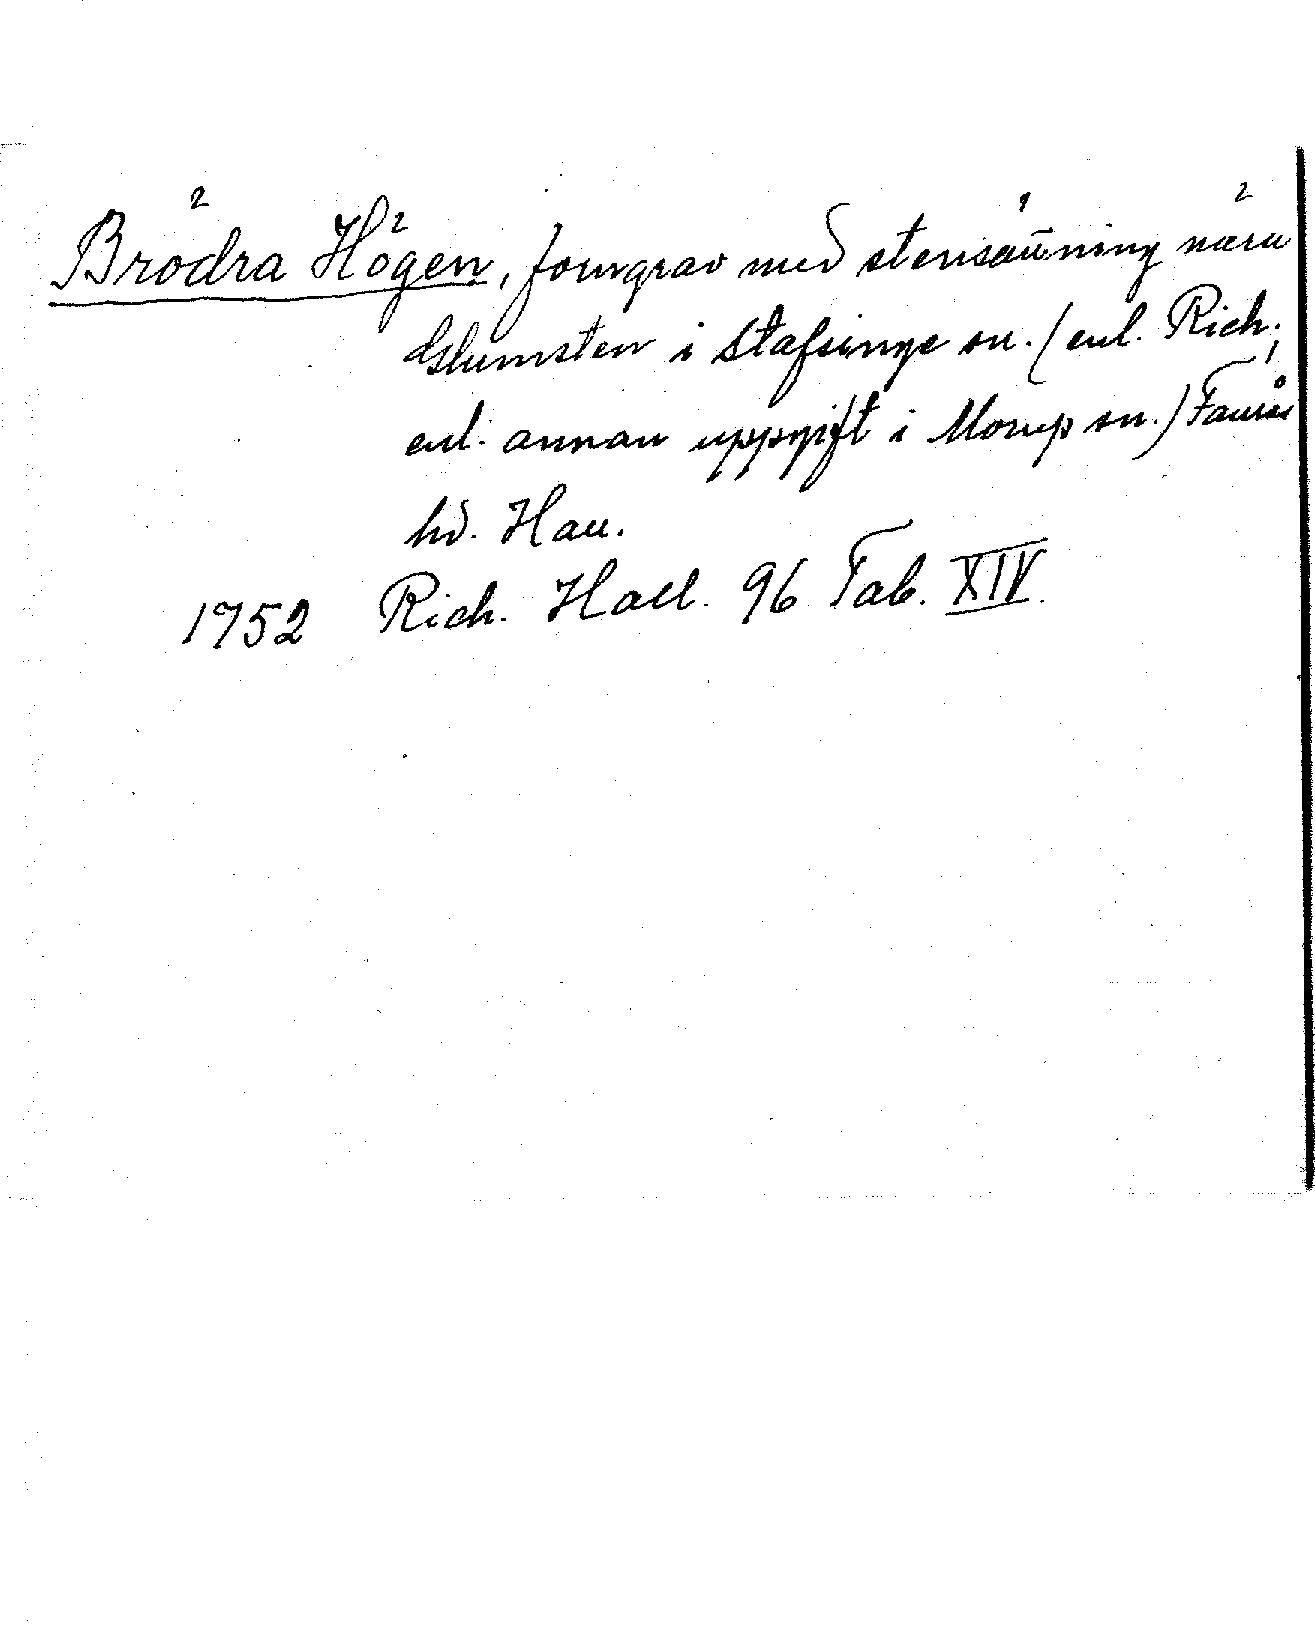 Brödra Högen, forngrav med stensättning nära
Glumsten i Stafsinge sn. (enl. Rich;
enl. annan uppgift i Morup sn.) Faurås
hd. Hall.
1752 Rich. Hall. 96 Tab. XIV.